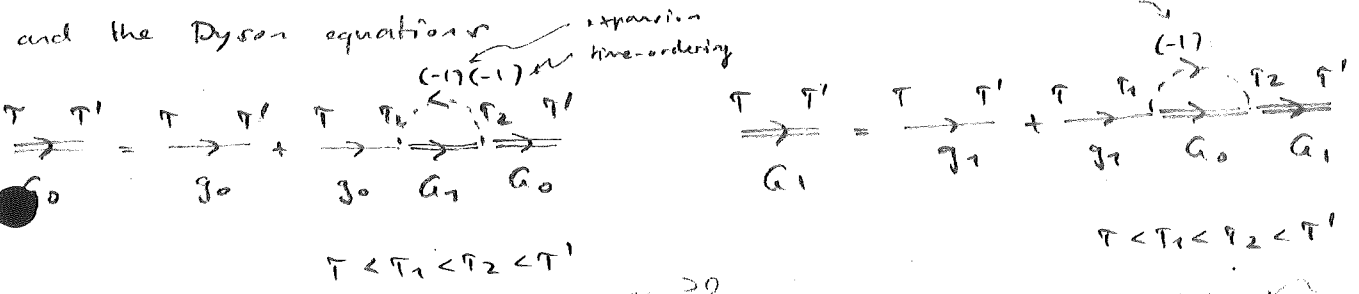 and the Dyson equations
expansion
time-ordering
(-1)(-1)
(-1)
τ τ' τ τ' τ τ₁ τ₂ τ'
= +
G₀ g₀ g₀ G₁ G₀
τ τ' τ τ' τ τ₁ τ₂ τ'
= +
G₁ g₁ g₁ G₀ G₁
τ < τ₁ < τ₂ < τ'
τ < τ₁ < τ₂ < τ'
>0